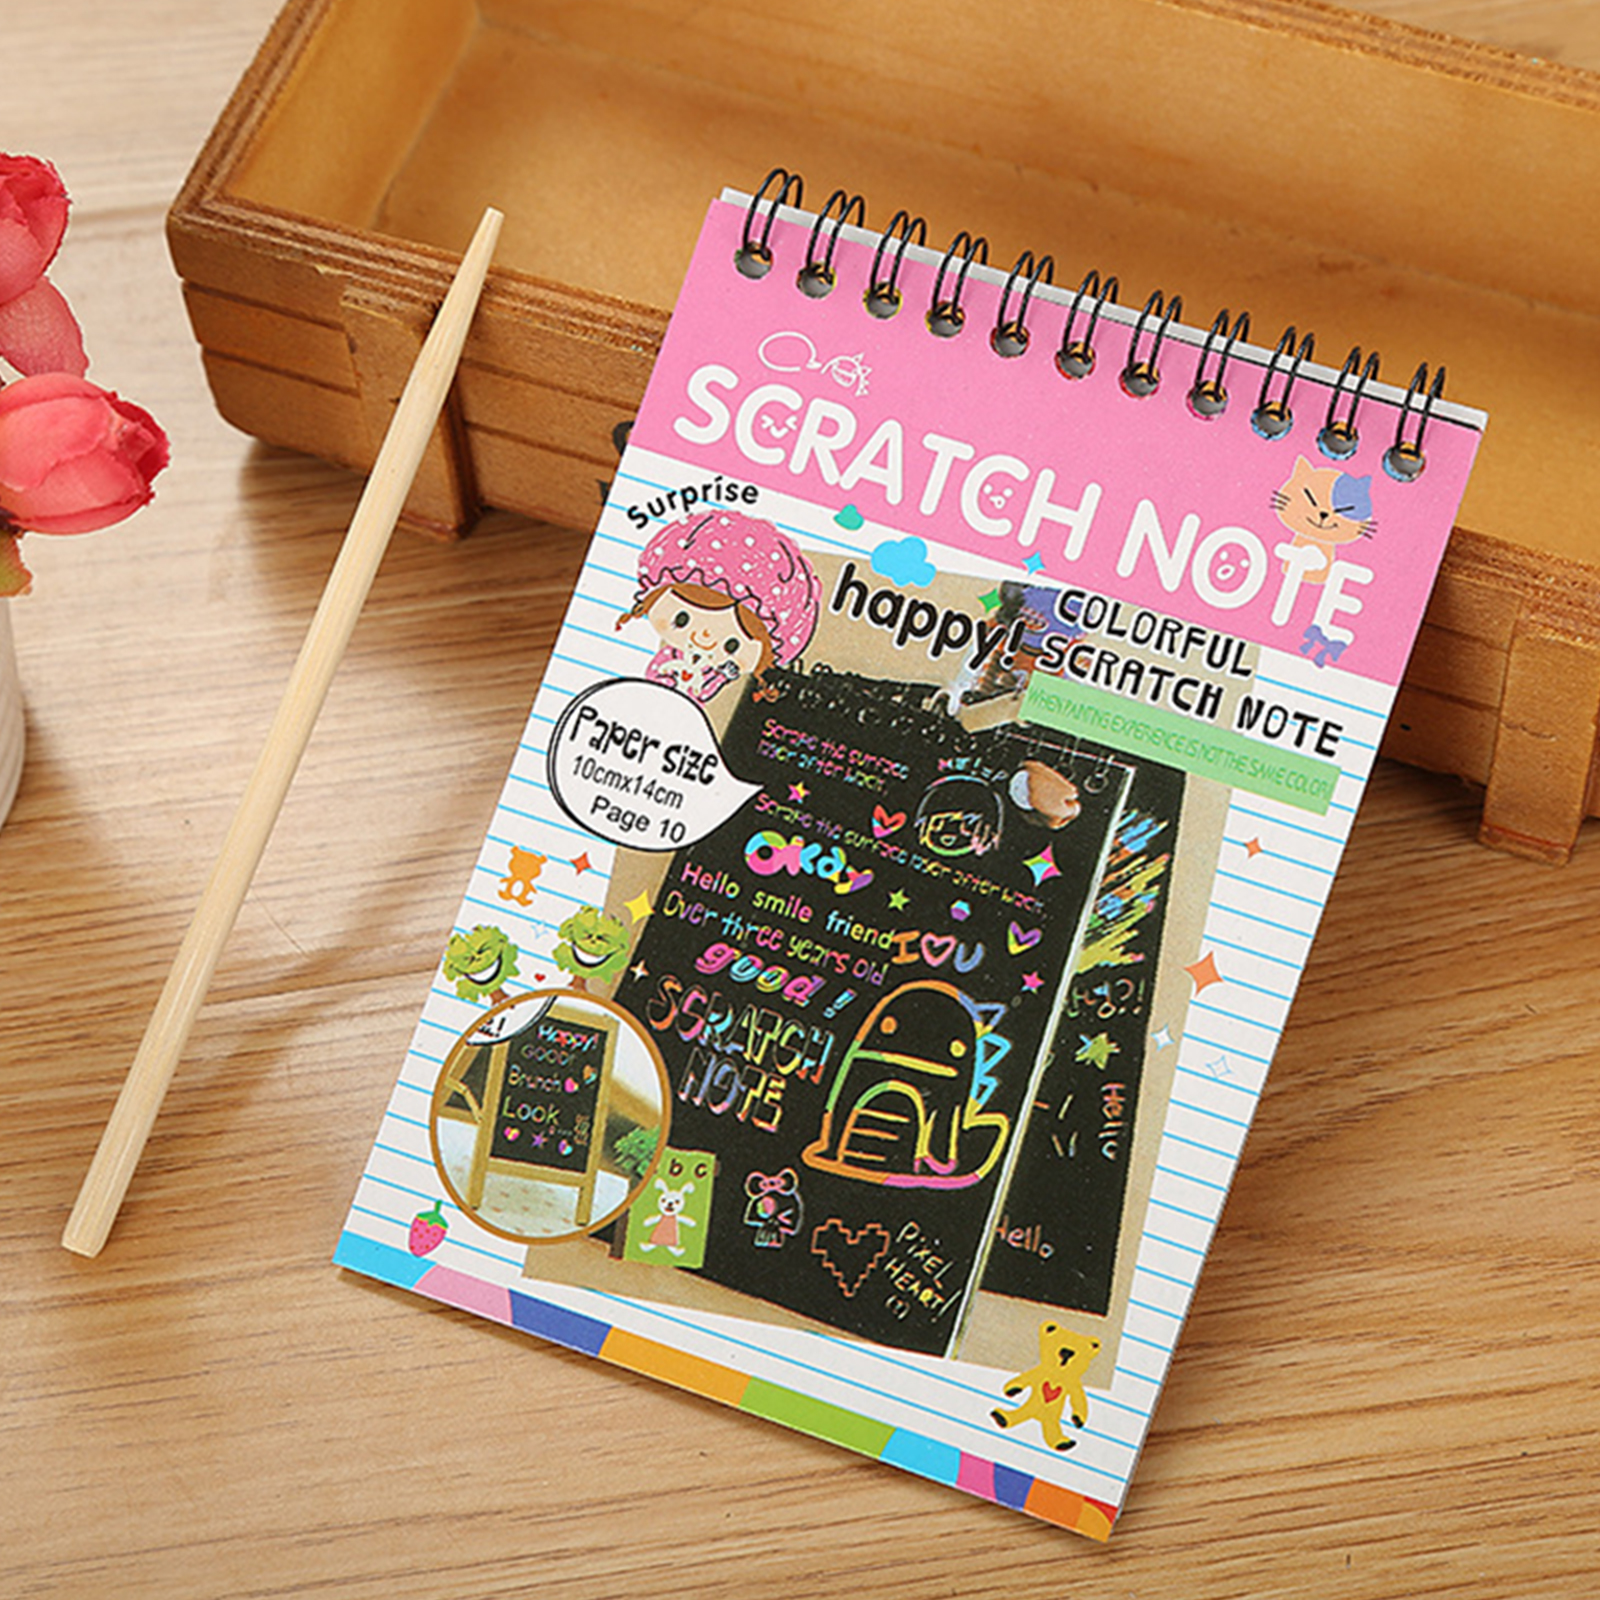 SCRATCH NOTE
Surprise
happy!
COLORFUL
SCRATCH NOTE
WHEN PAINTING EXPERIENCE IS NOT THE SAME COLOR
Paper size
10cmx14cm
Page 10
Scrape the surface
Scrape the surface
Okay
Hello smile friend
I U
Over three years old
good!
SCRATCH
NOTE
Happy!
GOOD!
Brunch
Look
b c
PiXEL
HEART!
Hello
Hello